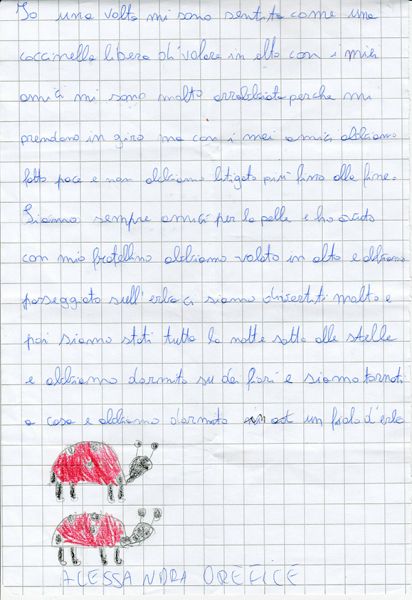 Io una volta mi sono sentita come una
coccinella libera di volare in alto con i miei
amici mi sono molto arrabbiata perche mi
prendono in giro ma con i miei amici abbiamo
fatto pace e non abbiamo litigato più fino alla fine.
Siamo sempre amici per la pelle e ho
con mio fratellino abbiamo volato in alto e abbiamo
passeggiato sull'erba ci siamo divertiti molto e
poi siamo stati tutta la notte sotto alle stelle
e abbiamo dormito su dei fiori e siamo tornati
a casa e abbiamo dormito un filo d'erba
ALESSANDRA OREFICE